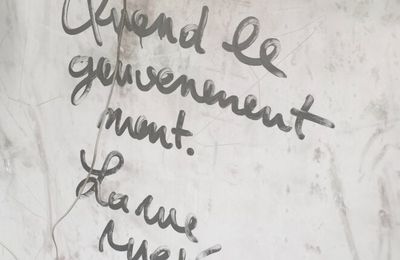 Quand le
gouvenement
ment.
La rue